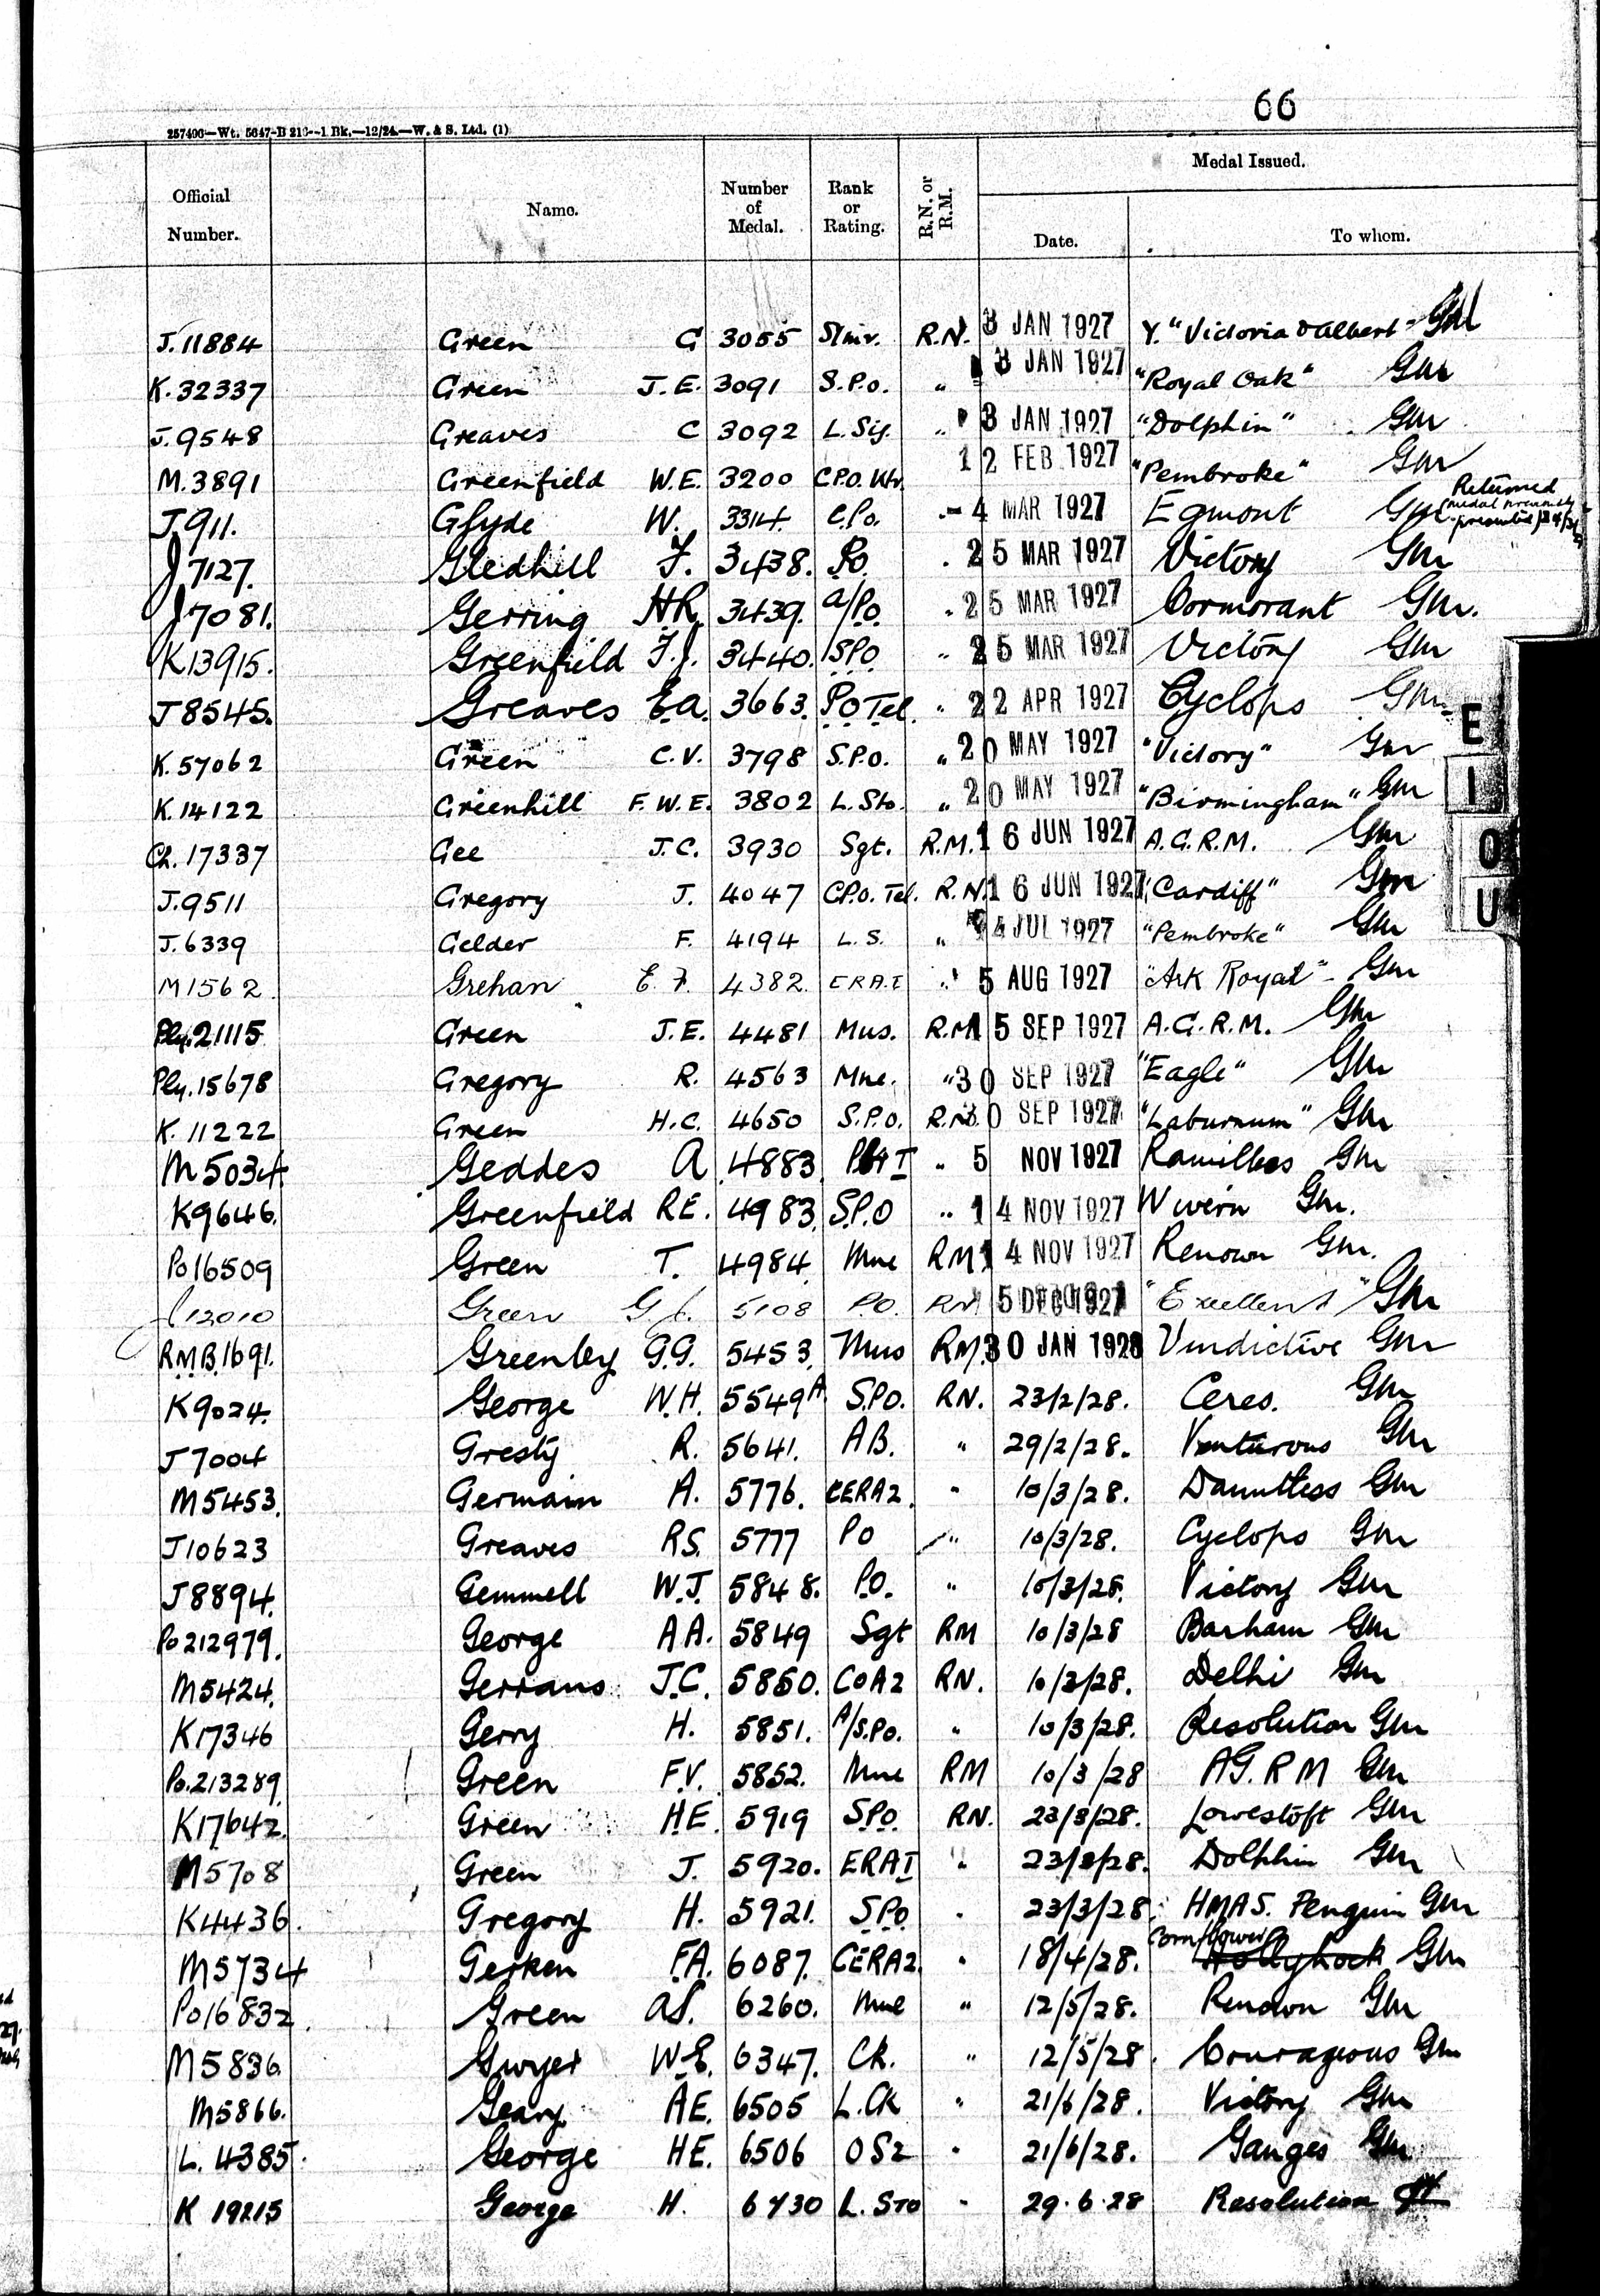 66
257406—Wt. 5647-B 216—1 Bk.—12/24.—W. & S. Ltd. (1)
Official Number. Name. Number of Medal. Rank or Rating. R.N. or R.M. Medal Issued. Date. To whom.
J. 11884 Green G 3055 R.N. 3 JAN 1927 Y. "Victoria & Albert" Gm
K. 32337 Green J.E. 3091 S.P.O. " 3 JAN 1927 "Royal Oak" Gm
J. 9548 Greaves C 3092 L. Sig. " 3 JAN 1927 "Dolphin" Gm
M. 3891 Greenfield W.E. 3200 C.P.O. Wtr. 12 FEB 1927 "Pembroke" Gm
J 911. Glyde W. 3314. C.Po. - 4 MAR 1927 Egmont Gm Returned medal previously presented
J 7127. Gledhill F. 3438. Po. 25 MAR 1927 Victory Gm
J 7081. Gerring H.R. 3439. a/Po. " 25 MAR 1927 Cormorant Gm.
K13915. Greenfield F.J. 3440. SPO " 25 MAR 1927 Victory Gm
J 8545. Greaves E.a. 3663. Po Tel. " 22 APR 1927 Cyclops Gm
K. 57062 Green C.V. 3798 S.P.O. " 20 MAY 1927 "Victory" Gm
K. 14122 Greenhill F.W.E. 3802 L. Sto. " 20 MAY 1927 "Birmingham" Gm
Ch. 17337 Gee J.C. 3930 Sgt. R.M. 16 JUN 1927 A.G.R.M. Gm
J. 9511 Gregory J. 4047 C.P.O. Tel. R.N. 16 JUN 1927 "Cardiff" Gm
J. 6339 Gelder F. 4194 L.S. " 4 JUL 1927 "Pembroke" Gm
M1562 Grehan E.F. 4382. ERA.I " 5 AUG 1927 "Ark Royal" Gm
Ply. 21115 Green J.E. 4481 Mus. R.M. 15 SEP 1927 A.G.R.M. Gm
Ply. 15678 Gregory R. 4563 Mne. " 30 SEP 1927 "Eagle" Gm
K. 11222 Green H.C. 4650 S.P.O. R.N. 30 SEP 1927 "Laburnum" Gm
M5034 Geddes A 4883 " 5 NOV 1927 Ramillies Gm
K9646. Greenfield R.E. 4983. S.P.O " 14 NOV 1927 Wivern Gm.
Po 16509 Green T. 4984. Mne RM 14 NOV 1927 Renown Gm.
J 12010 Green G.J. 5108 P.O. RN 5 DEC 1927 "Excellent" Gm
R.M.B. 1691. Greenley G.G. 5453. Mus RM. 30 JAN 1928 Vindictive Gm
K9024. George W.H. 5549A S.P.O. RN. 23/2/28. Ceres. Gm
J 7004 Gresty R. 5641. AB. " 29/2/28. Venturous Gm
M5453. Germain A. 5776. CERA2. " 10/3/28. Dauntless Gm
J10623 Greaves R.S. 5777 PO " 10/3/28. Cyclops Gm
J8894. Gemmell W.J 5848. P.O. " 10/3/28. Victory Gm
Po 212979. George A.A. 5849 Sgt RM 10/3/28 Barham Gm
M5424. Gerrans J.C. 5850. COA2 RN. 10/3/28. Delhi Gm
K17346 Gerry H. 5851. A/S.Po. " 10/3/28. Resolution Gm
Po. 213289. Green F.V. 5852. Mne RM 10/3/28 A.G.R M Gm
K17642. Green H.E. 5919 S.P.O. RN. 23/3/28. Lowestoft Gm
M5708 Green J. 5920. ERA I " 23/3/28. Dolphin Gm
K4436. Gregory H. 5921. S.P.O " 23/3/28 HMAS. Penguin Gm
M5734 Gerken F.A. 6087. CERA2. " 18/4/28. Cornflower Hollyhock Gm
Po 16832 Green aS. 6260. Mne " 12/5/28. Renown Gm
M5836. Gwyer W.E. 6347. CK. " 12/5/28. Courageous Gm
M5866. Geary A.E. 6505 L. CK " 21/6/28. Victory Gm
L. 4385. George HE. 6506 OS2 " 21/6/28. Ganges Gm
K 19215 George H. 6730 L. STO " 29.6.28 Resolution
E
I
O
U